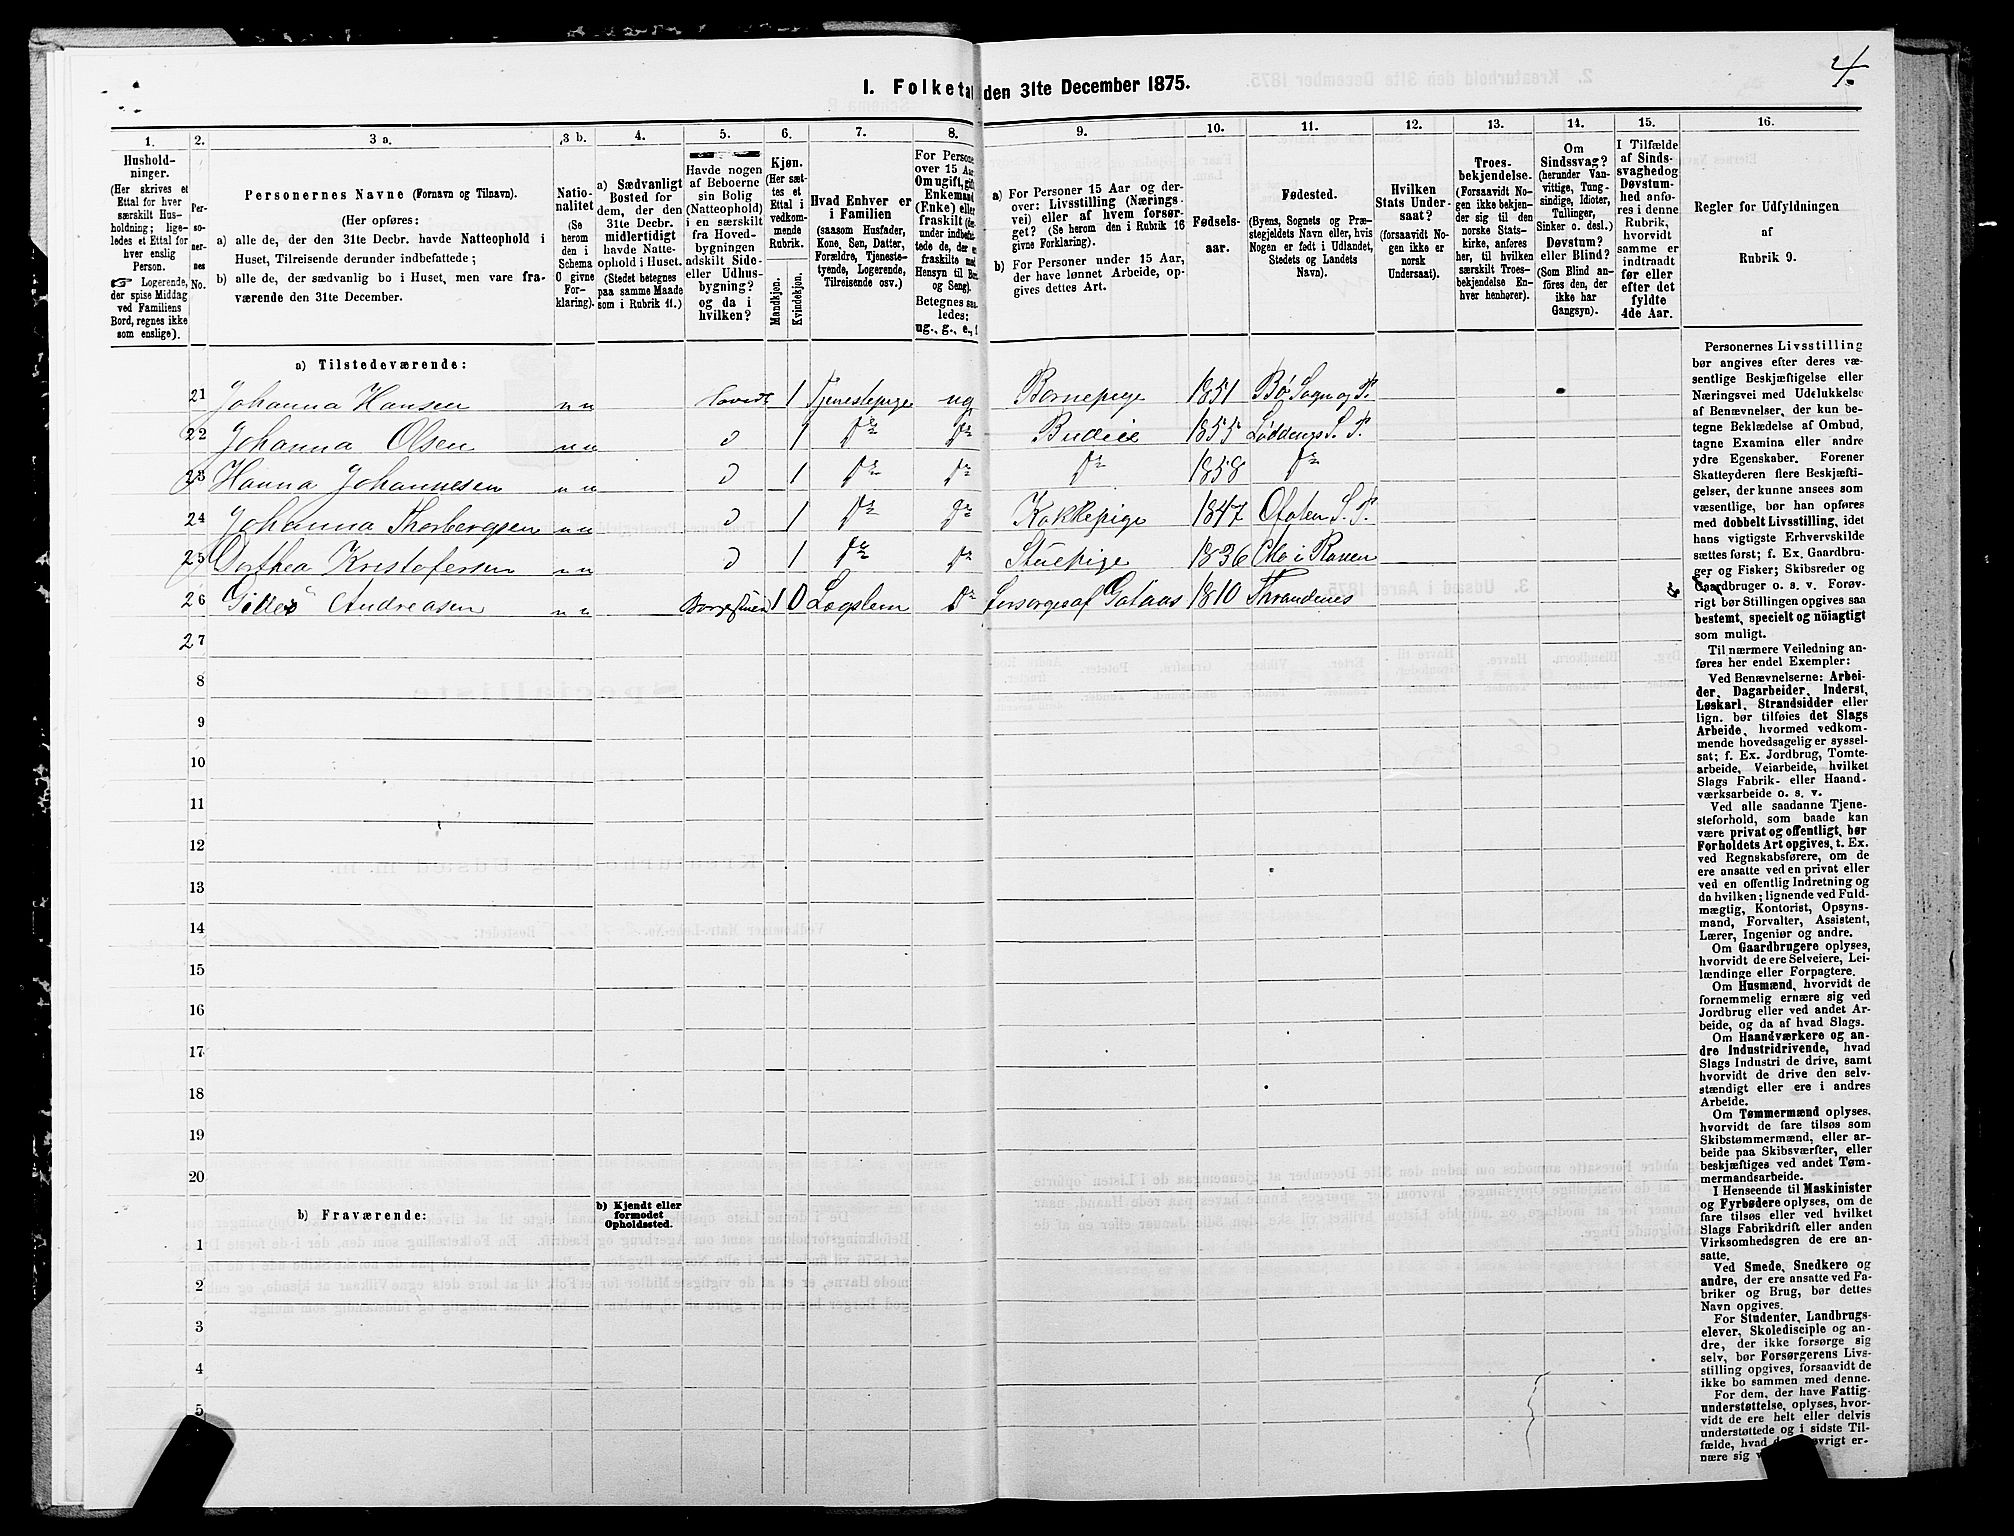 4.
I. Folketal den 31te December 1875.
1. 2. 3 a. 3 b. 4. 5. 6. 7. 8. 9. 10. 11. 12. 13. 14. 15. 16.
Hushold-
ninger.
(Her skrives et
Ettal for hver
særskilt Hus-
holdning; lige-
ledes et Ettal for
hver enslig
Person.
☞ Logerende,
der spise Middag
ved Familiens
Bord, regnes ikke
som enslige).
Per-
so-
ner-
nes
No.
Personernes Navne (Fornavn og Tilnavn).
(Her opføres:
a) alle de, der den 31te Decbr. havde Natteophold i
Huset, Tilreisende derunder indbefattede;
b) alle de, der sædvanlig bo i Huset, men vare fra-
værende den 31te December.
Natio-
nalitet
(Se
herom
den i
Schema
O givne
For-
klaring).
a) Sædvanligt
Bosted for
dem, der den
31te Decbr.
midlertidigt
havde Natte-
ophold i Huset.
(Stedet betegnes
paa samme Maade
som i Rubrik 11.)
Havde nogen
af Beboerne
sin Bolig
(Natteophold)
i en særskilt
fra Hoved-
bygningen
adskilt Side-
eller Udhus-
bygning?
og da i
hvilken?
Kjøn.
(Her sæt-
tes et
Ettal i
vedkom-
mende
Rubrik.
Mandkjøn.
Kvindekjøn.
Hvad Enhver er
i Familien
(saasom Husfader,
Kone, Søn, Datter,
Forældre, Tjeneste-
tyende, Logerende,
Tilreisende osv.)
For Persone
over 15 Aar
Om ugift, gift
Enkemand
(Enke) eller
fraskilt
Betegnes saa-
ledes:
ug., g., e., f
a) For Personer 15 Aar og der-
over: Livsstilling (Nærings-
vei) eller af hvem forsør-
get? (Se herom den i Rubrik 16
givne Forklaring).
b) For Personer under 15 Aar,
der have lønnet Arbeide, op-
gives dettes Art.
Fødsels-
aar.
Fødested.
(Byens, Sognets og Præ-
stegjeldets Navn eller, hvis
Nogen er født i Udlandet,
Stedets og Landets
Navn).
Hvilken
Stats Under-
saat?
(forsaavidt No-
gen ikke er
norsk
Undersaat).
Troes-
bekjendelse.
(Forsaavidt No-
gen ikke bekjen-
der sig til den
norske Stats-
kirke, anføres
her, til hvilken
særskilt Troes-
bekjendelse En-
hver henhører).
Om
Sindssvag?
(herunder Van-
vittige, Tung-
sindige, Idioter,
Tullinger,
Sinker o. desl.)
Døvstum?
eller Blind?
(Som Blind an-
føres den, der
ikke har
Gangsyn).
I Tilfælde
af Sinds-
svaghed og
Døvstum-
hed anfø-
res i denne
Rubrik,
hvorvidt
samme er
indtraadt
før eller
efter det
fyldte
4de Aar.
Regler for Udfyldningen
af
Rubrik 9.
a) Tilstedeværende:
21 Johanna Hansen n n 1 Tjenestepige ug Bornepige 1851 Bø Sogn og P.
22 Johanna Olsen n n D 1 Do Do Budeie 1855 Løddings S. P.
23 Hanna Johannesen n n D 1 Do Do Do 1858 Do
24 Johanna Thorbergsen n n D 1 Do Do Kokkepige 1847 Ofoten S. P.
25 Dorthea Kristofersen n n D 1 Do Do Stuepige 1836 Mo i Ranen
26 Andreasen n n Borgestuen 1 0 Lægslem Do forsørges af 1810 Thrandenes
27
8
9
10
11
12
13
14
15
16
17
18
19
20
b) Fraværende:
b) Kjendt eller
formodet
Opholdssted.
1
2
3
4
5
Personernes Livsstilling
bør angives efter deres væ-
sentlige Beskjæftigelse eller
Næringsvei med Udelukkelse
af Benævnelser, der kun be-
tegne Beklædelse af Ombud,
tagne Examina eller andre
ydre Egenskaber. Forener
Skatteyderen flere Beskjæfti-
gelser, der kunne ansees som
væsentlige, bør han opføres
med dobbelt Livsstilling, idet
hans vigtigste Erhvervskilde
sættes først; f. Ex. Gaardbru-
ger og Fisker; Skibsreder og
Gaardbruger o. s. v. Forøv-
rigt bør Stillingen opgives saa
bestemt, specielt og nöiagtigt
som muligt.
Til nærmere Veiledning an-
føres her endel Exempler:
Ved Benævnelserne: Arbei-
der, Dagarbeider, Inderst,
Løskarl, Strandsidder eller
lign. bør tilføies det Slags
Arbeide, hvormed vedkom-
mende hovedsagelig er syssel-
sat; f. Ex. Jordbrug, Tomte-
arbeide, Veiarbeide, hvilket
Slags Fabrik- eller Haand-
værksarbeide o. s. v.
Ved alle saadanne Tjene-
steforhold, som baade kan
være privat og offentligt, bør
Forholdets Art opgives, t. Ex.
ved Regnskabsførere, om de
ere ansatte ved en privat eller
ved en offentlig Indretning og
da hvilken; lignende ved Fuld-
mægtig, Kontorist, Opsyns-
mand, Forvalter, Assistent,
Lærer, Ingeniør og andre.
Om Gaardbrugere oplyses,
hvorvidt de ere Selveiere, Lei-
lændinge eller Forpagtere.
Om Husmænd, hvorvidt de
fornemmelig ernære sig ved
Jordbrug eller ved andet Ar-
beide, og da af hvad Slags.
Om Haandværkere og an-
dre Industridrivende, hvad
Slags Industri de drive, samt
hvorvidt de drive den selv-
stændigt eller ere i andres
Arbeide.
Om Tømmermænd oplyses,
hvorvidt de fare tilsøs som
Skibstømmermænd, eller ar-
beide paa Skibsværfter, eller
beskjæftiges ved andet Tøm-
mermandsarbeide.
I Henseende til Maskinister
og Fyrbødere oplyses, om de
fare tilsøs eller ved hvilket
Slags Fabrikdrift eller anden
Virksomhedsgren de ere an-
satte.
Ved Smede, Snedkere og
andre, der ere ansatte ved Fa-
briker og Brug, bør dettes
Navn opgives.
For Studenter, Landbrugs-
elever, Skoledisciple og an-
dre, der ikke forsørge sig
selv, bør Forsørgerens Livs-
stilling opgives, forsaavidt de
ikke bo sammen med denne.
For dem, der have Fattig-
understøttelse, oplyses, hvor-
vidt de ere helt eller delvis
understøttede og i sidste Til-
fælde, hvad de forøvrigt er-
nære sig